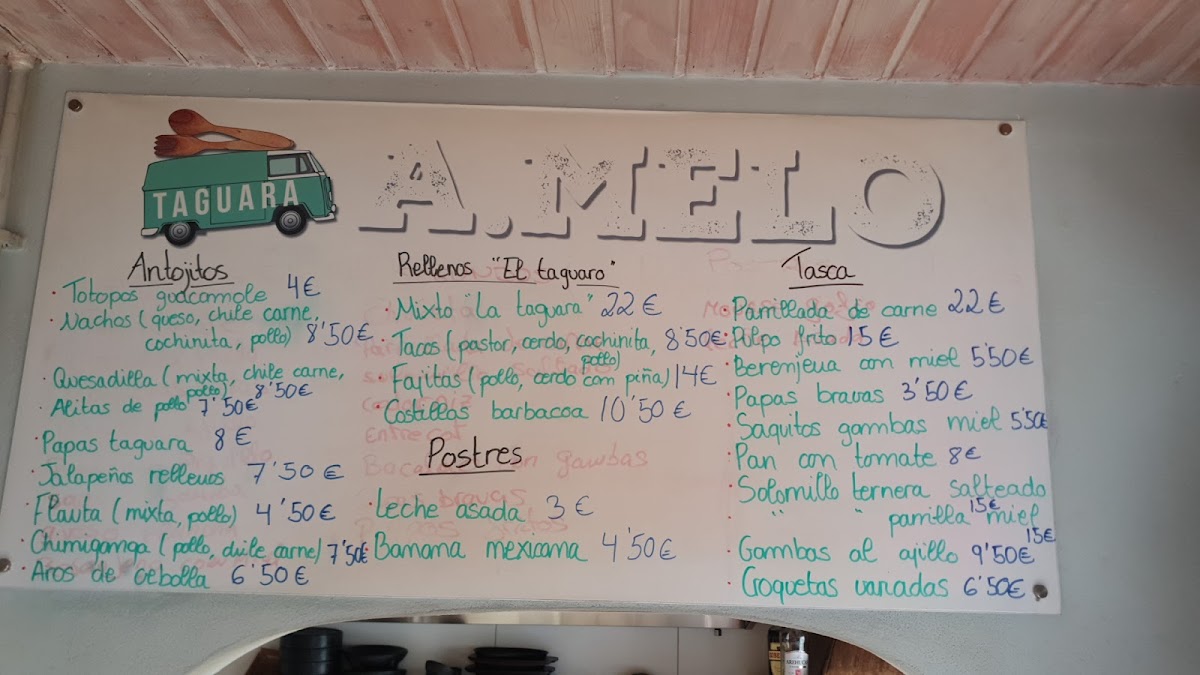 TAGUARA
A.MELO
Antojitos
· Totopos guacamole 4€
· Nachos (queso, chile carne,
cochinita, pollo) 8'50€
· Quesadilla (mixta, chile carne,
pollo) 8'50€
· Alitas de pollo 7'50€
· Papas taguara 8€
· Jalapeños rellenos 7'50€
· Flauta (mixta, pollo) 4'50€
· Chimiganga (pollo, chile carne) 7'50€
· Aros de cebolla 6'50€
Rellenos "El taguaro"
· Mixto "La taguara" 22€
· Tacos (pastor, cerdo, cochinita, 8'50€
pollo)
· Fajitas (pollo, cerdo com piña) 14€
· Costillas barbacoa 10'50€
Postres
· Leche asada 3€
· Banana mexicana 4'50€
Tasca
· Parrillada de carne 22€
· Pulpo frito 15€
· Berenjena com miel 5'50€
· Papas bravas 3'50€
· Saquitos gambas miel 5'50€
· Pan con tomate 8€
· Solomillo ternera salteado
15€
" " parrilla miel
15€
· Gambas al ajillo 9'50€
· Croquetas variadas 6'50€